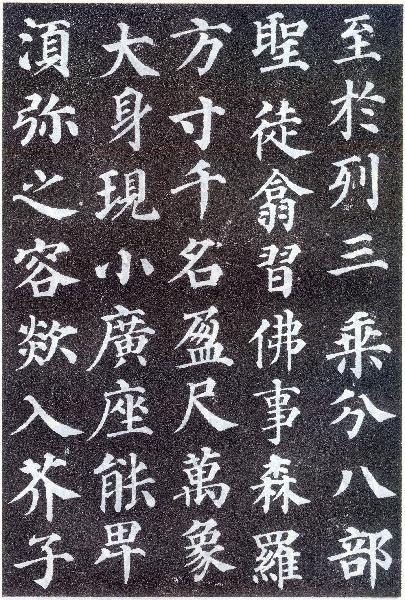 至於列三乘分八部
聖徒翕習佛事森羅
方寸千名盈尺萬象
大身現小廣座能卑
湏弥之容欻入芥子